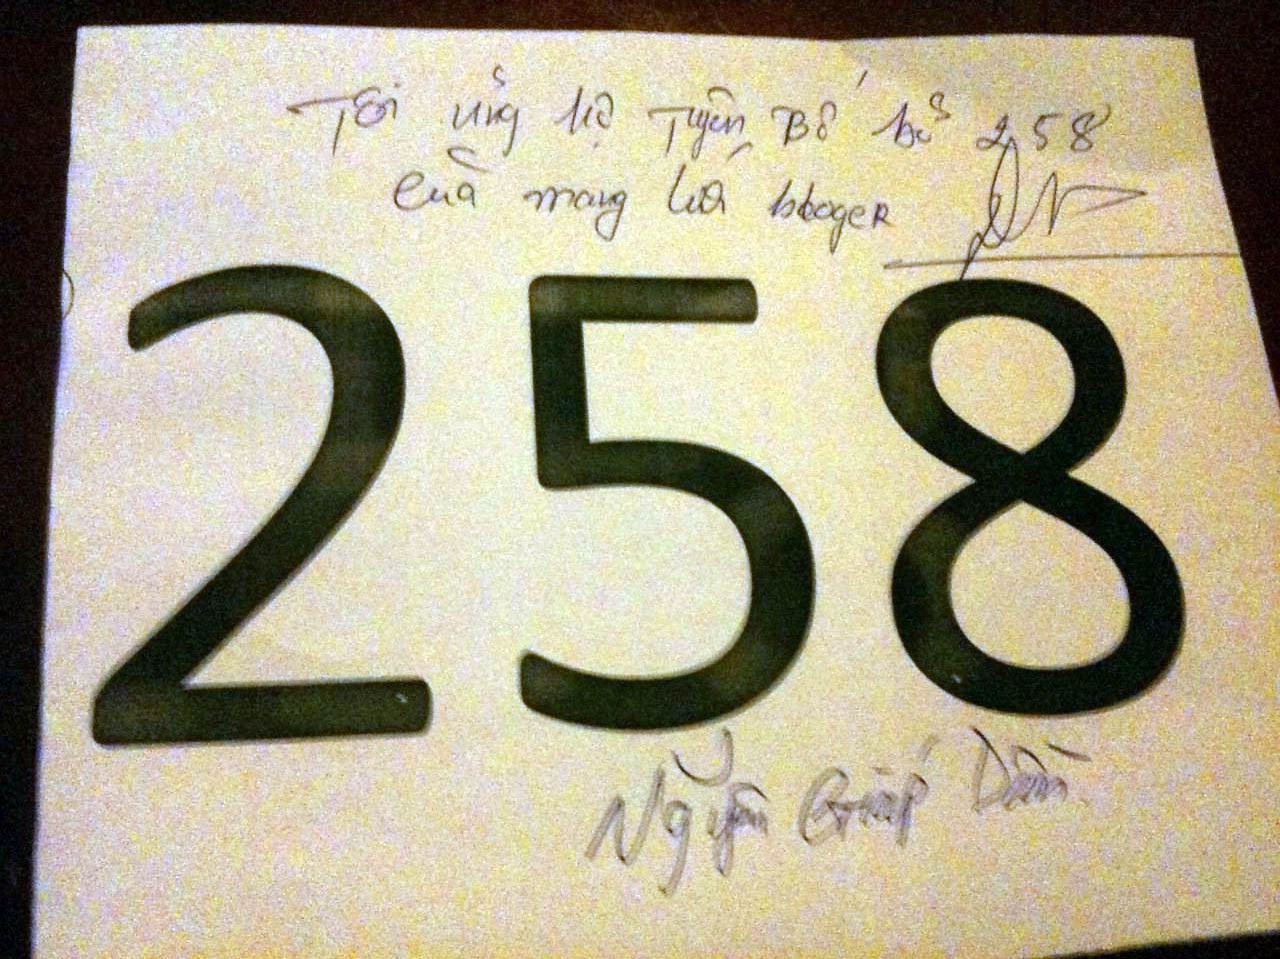 Tôi ủng hộ Tuyên Bố bỏ 258
của mạng lưới blogger
258
Nguyễn